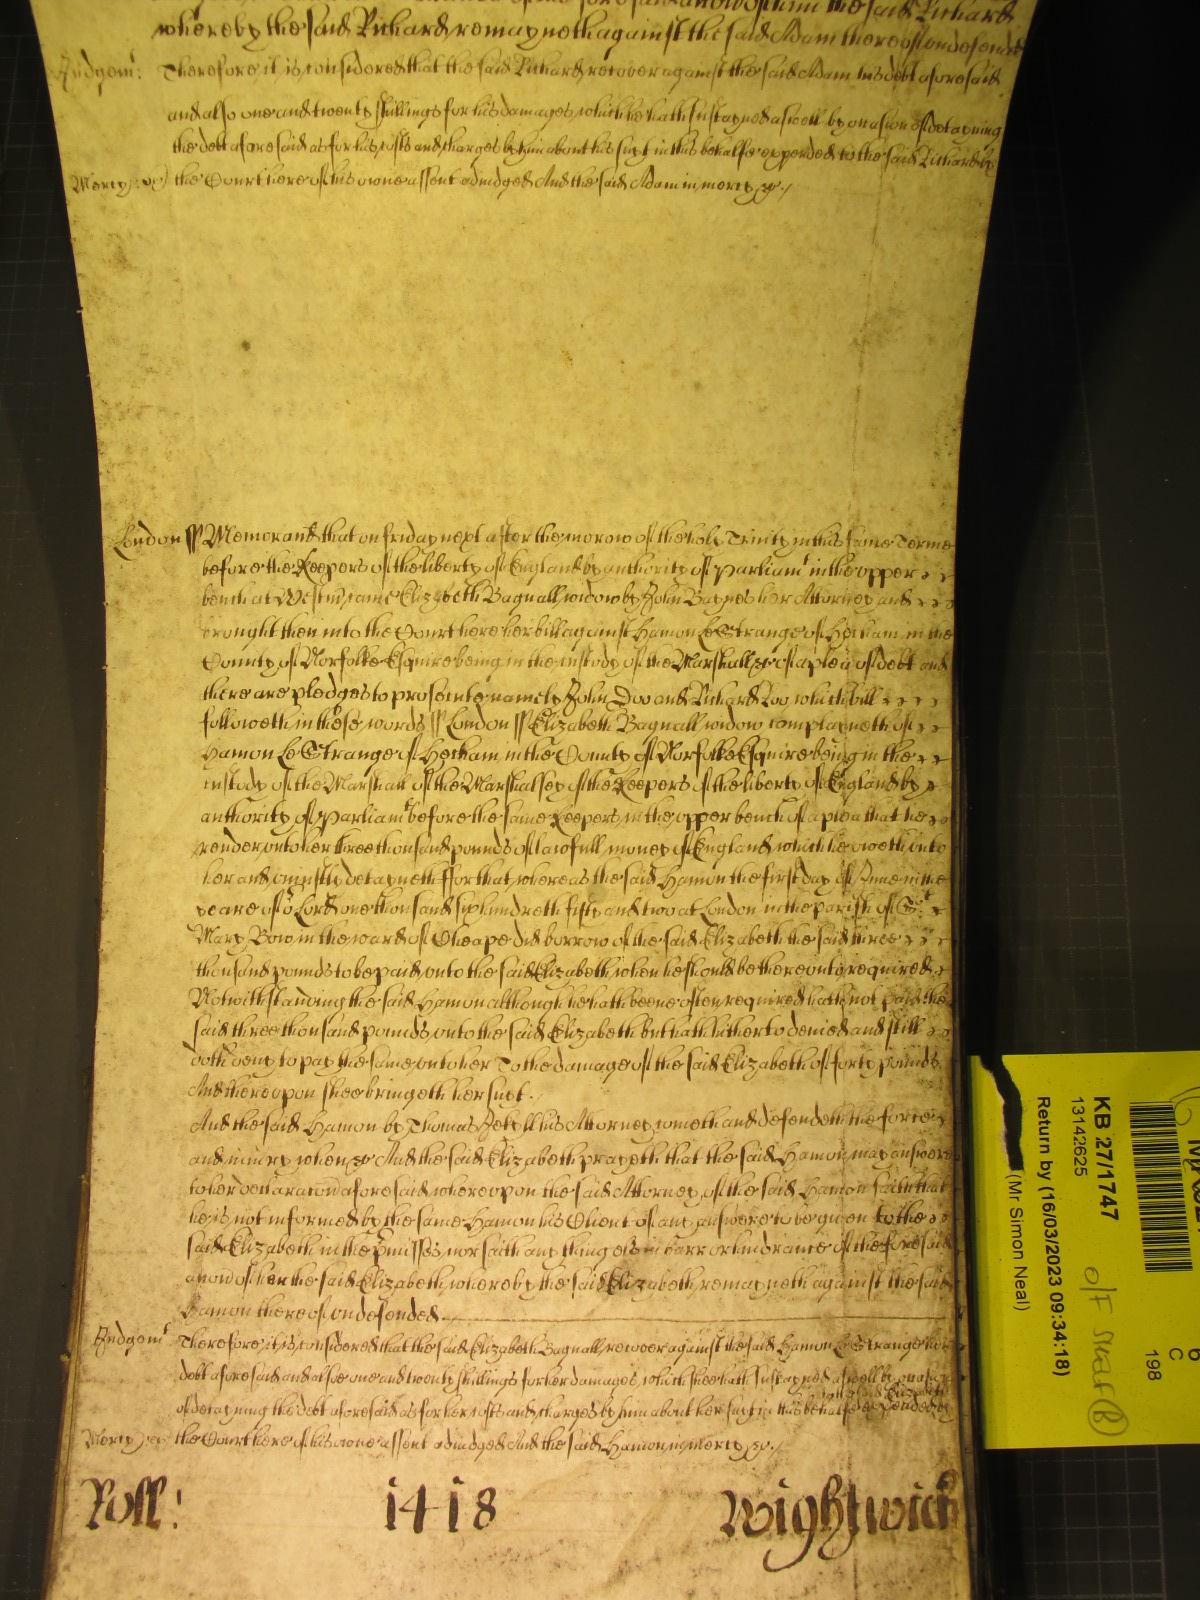 whereby the said Richard remayneth against the said Adam thereof undefended
Judgem^t. Therefore it is considered that the said Richard recover against the said Adam his debt aforesaid
and also one and twenty shillings for his damages which he hath sustayned aswell by occasion of detayning
the debt aforesaid as for his costs and charges by him about his suyt in this behalfe expended to the said Richard by
Mercy &c) the Court here of his owne assent adiudged And the said Adam in mercy &c./
London ss Memorand that on friday next after the morow of the holy Trinity in this same Terme
before the Keepers of the liberty of England by authority of Parliam^t in the upper
bench at Westm came Elizabeth Bagnall widow by John Baynes her Attorney and
brought then into the Court here her bill against Hamon Le Strange of Hecham in the
County of Norfolke Esquire being in the custody of the Marshall &c of a plea of debt and
there are pledges to prosecute namely John Doo and Richard Roo which bill
followeth in these words ss London ss Elizabeth Bagnall widow complayneth of
Hamon Le Strange of Hecham in the County of Norfolke Esquire being in the
custody of the Marshall of the Marshallsey of the Keepers of the liberty of England by
authority of Parliam^t before the same Keepers in the upper bench of a plea that he
render unto her three thousand pounds of lawfull money of England which he oweth unto
her and uniustly detayneth ffor that whereas the said Hamon the first day of June in the
yeare of o^r Lord one thousand six hundreth fifty and two at London in the parish of S^t
Mary Bow in the ward of Cheape did borrow of the said Elizabeth the said three
thousand pounds to be paid unto the said Elizabeth when he should be thereonto required
Notwithstanding the said Hamon although he hath beene often required hath not paid the
said three thousand pounds unto the said Elizabeth but hath hitherto denied and still
doth deny to pay the same unto her To the damage of the said Elizabeth of forty pounds
And thereupon shee bringeth her suyt.
And the said Hamon by Thomas Jekyll his Attorney cometh and defendeth the force
and iniury when &c And the said Elizabeth prayeth that the said Hamon may answere
to her declaration aforesaid whereupon the said Attorney of the said Hamon saith that
he is not informed by the same Hamon his Client of any answere to be given to the
said Elizabeth in the p^rmisses nor saith any thing els in barr or hindrance of the foresaid
accon of her the said Elizabeth whereby the said Elizabeth remayneth against the said
Hamon thereof undefended
Judgem^t Therefore it is considered that the said Elizabeth Bagnall recover against the said Hamon Le Strange her
debt aforesaid and alsoe one and twenty shillings for her damages which shee hath sustayned aswell by occasion
of detayning the debt aforesaid as for her costs and charges by him about her suyt in this behalfe expended to the said Elizabeth by
Mercy &c the Court here of his owne assent adiudged And the said Hamon in mercy &c./
Roll! 1418 Wightwick
KB 27/1747
13142625
Return by (16/03/2023 09:34:18)
(Mr Simon Neal)
198